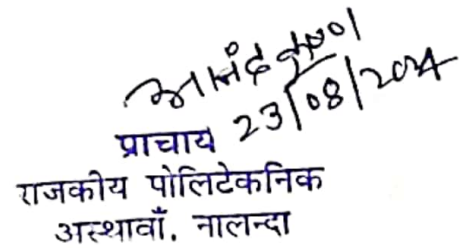 आनंद कृष्णा
23/08/2024
प्राचार्य
राजकीय पोलिटेकनिक
अस्थावाँ, नालन्दा